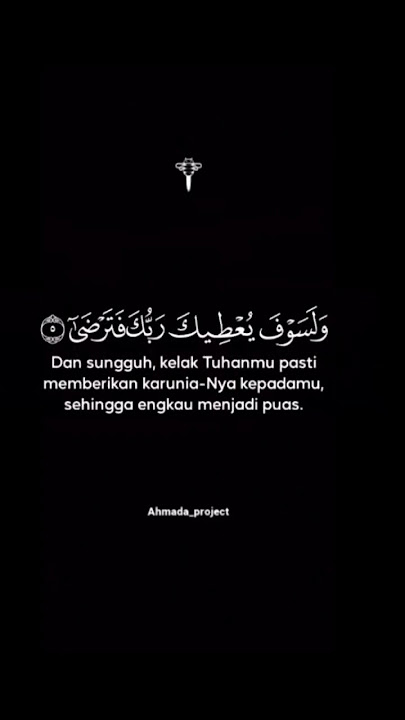 وَلَسَوْفَ يُعْطِيكَ رَبُّكَ فَتَرْضَىٰٓ ۝٥
Dan sungguh, kelak Tuhanmu pasti
memberikan karunia-Nya kepadamu,
sehingga engkau menjadi puas.
Ahmada_project